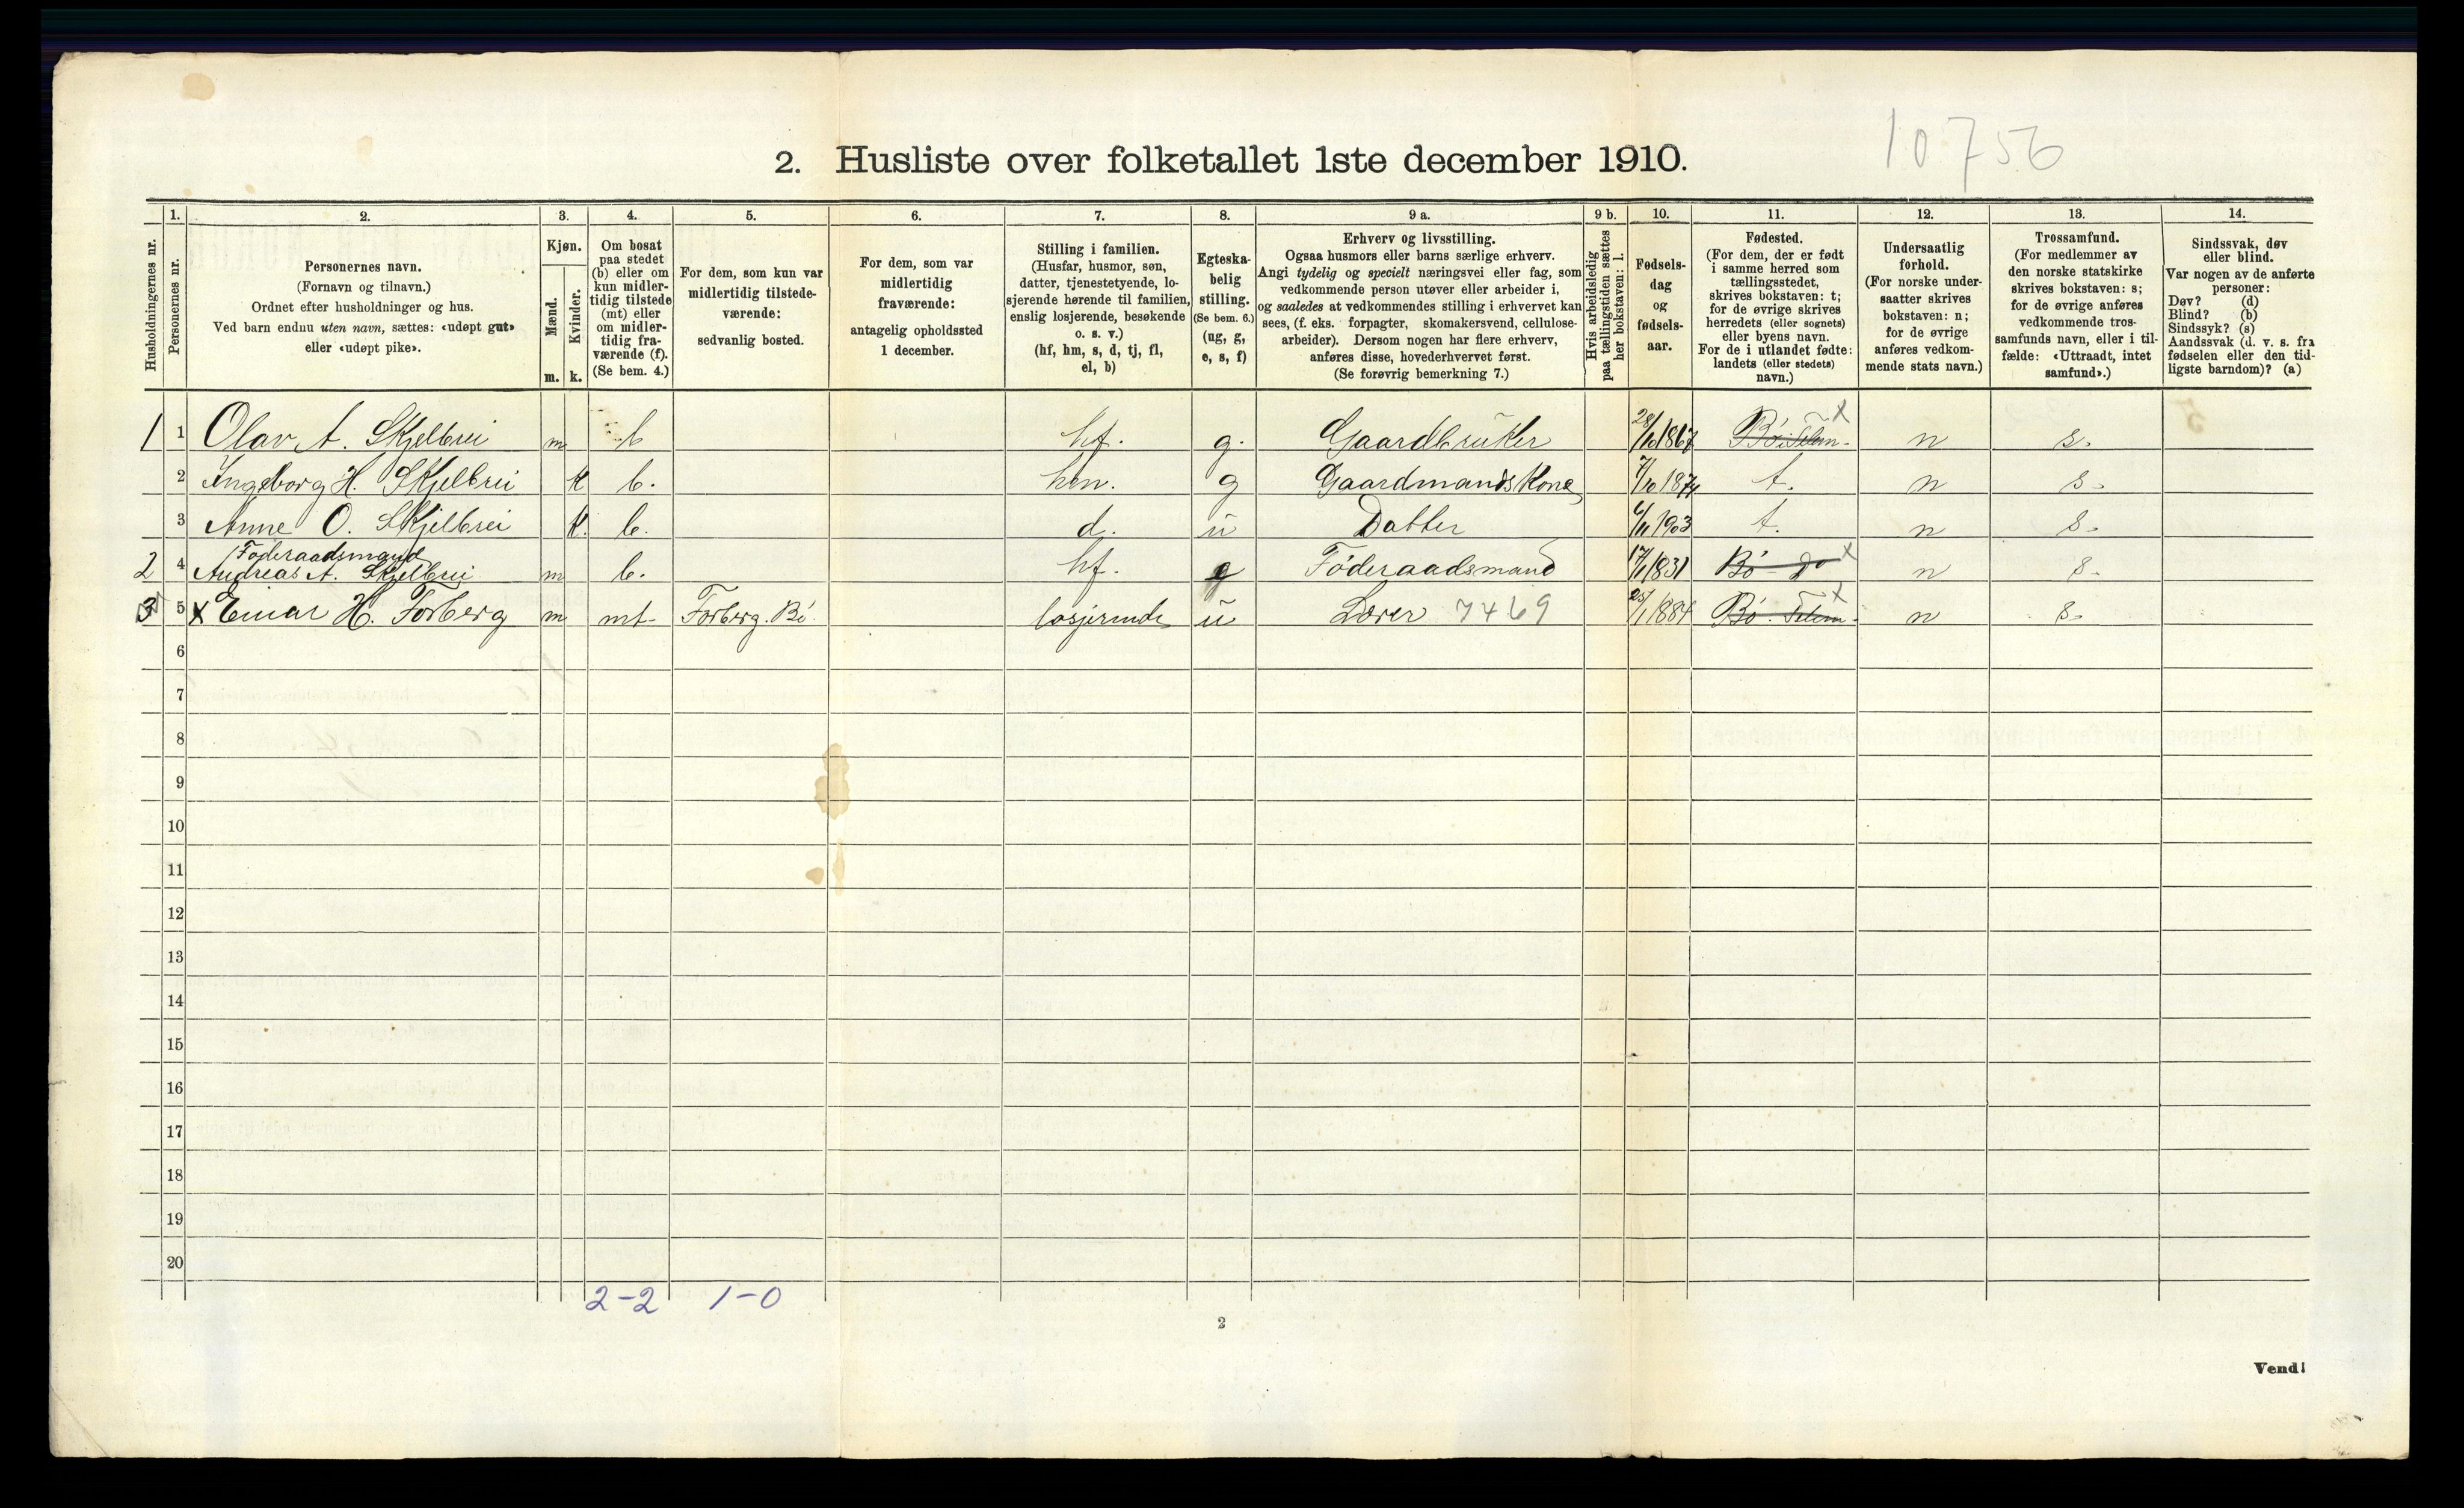 10756
2. Husliste over folketallet 1ste december 1910.
Husholdningernes nr.
1.
Personernes nr.
2.
Personernes navn.
(Fornavn og tilnavn.)
Ordnet efter husholdninger og hus.
Ved barn endnu uten navn, sættes: «udøpt gut»
eller «udøpt pike».
3.
Kjøn.
Mænd.
Kvinder.
m. k.
4.
Om bosat
paa stedet
(b) eller om
kun midler-
tidig tilstede
(mt) eller
om midler-
tidig fra-
værende (f).
(Se bem. 4.)
5.
For dem, som kun var
midlertidig tilstede-
værende:
sedvanlig bosted.
6.
For dem, som var
midlertidig
fraværende:
antagelig opholdssted
1 december.
7.
Stilling i familien.
(Husfar, husmor, søn,
datter, tjenestetyende, lo-
sjerende hørende til familien,
enslig losjerende, besøkende
o. s. v.)
(hf, hm, s, d, tj, fl,
el, b)
8.
Egteska-
belig
stilling.
(Se bem. 6.)
(ug, g,
e, s, f)
9 a.
Erhverv og livsstilling.
Ogsaa husmors eller barns særlige erhverv.
Angi tydelig og specielt næringsvei eller fag, som
vedkommende person utøver eller arbeider i,
og saaledes at vedkommendes stilling i erhvervet kan
sees, (f. eks. forpagter, skomakersvend, cellulose-
arbeider). Dersom nogen har flere erhverv,
anføres disse, hovederhvervet først.
(Se forøvrig bemerkning 7.)
9 b.
Hvis arbeidsledig
paa tællingstiden sættes
her bokstaven: l.
10.
Fødsels-
dag
og
fødsels-
aar.
11.
Fødested.
(For dem, der er født
i samme herred som
tællingsstedet,
skrives bokstaven: t;
for de øvrige skrives
herredets (eller sognets)
eller byens navn.
For de i utlandet fødte:
landets (eller stedets)
navn.)
12.
Undersaatlig
forhold.
(For norske under-
saatter skrives
bokstaven: n;
for de øvrige
anføres vedkom-
mende stats navn.)
13.
Trossamfund.
(For medlemmer av
den norske statskirke
skrives bokstaven: s;
for de øvrige anføres
vedkommende tros-
samfunds navn, eller i til-
fælde: «Uttraadt, intet
samfund».)
14.
Sindssvak, døv
eller blind.
Var nogen av de anførte
personer:
Døv? (d)
Blind? (b)
Sindssyk? (s)
Aandssvak (d. v. s. fra
fødselen eller den tid-
ligste barndom)? (a)
1 1 Olav A. Skjelbrei m b hf. g. Gaardbruker 28/10 1867 Bø i Telem. x n s.
2 Ingeborg H. Skjelbrei k b. hm. g Gaardmands Kone 7/10 1874 t. n s.
3 Anne O. Skjelbrei k. b. d. u Datter 6/11 1903 t. n s.
Føderaadsmand
2 4 Andreas A. Skjelbrei m b. hf. Føderaadsmand 17/1 1831 Bø do x n s.
3 5 x Einar H. Forberg m mt. Forberg. Bø. losjerende u Lærer 7469 1884 Bø. Telem. x n s.
6
7
8
9
10
11
12
13
14
15
16
17
18
19
20
2-2 1-0
2
Vend!